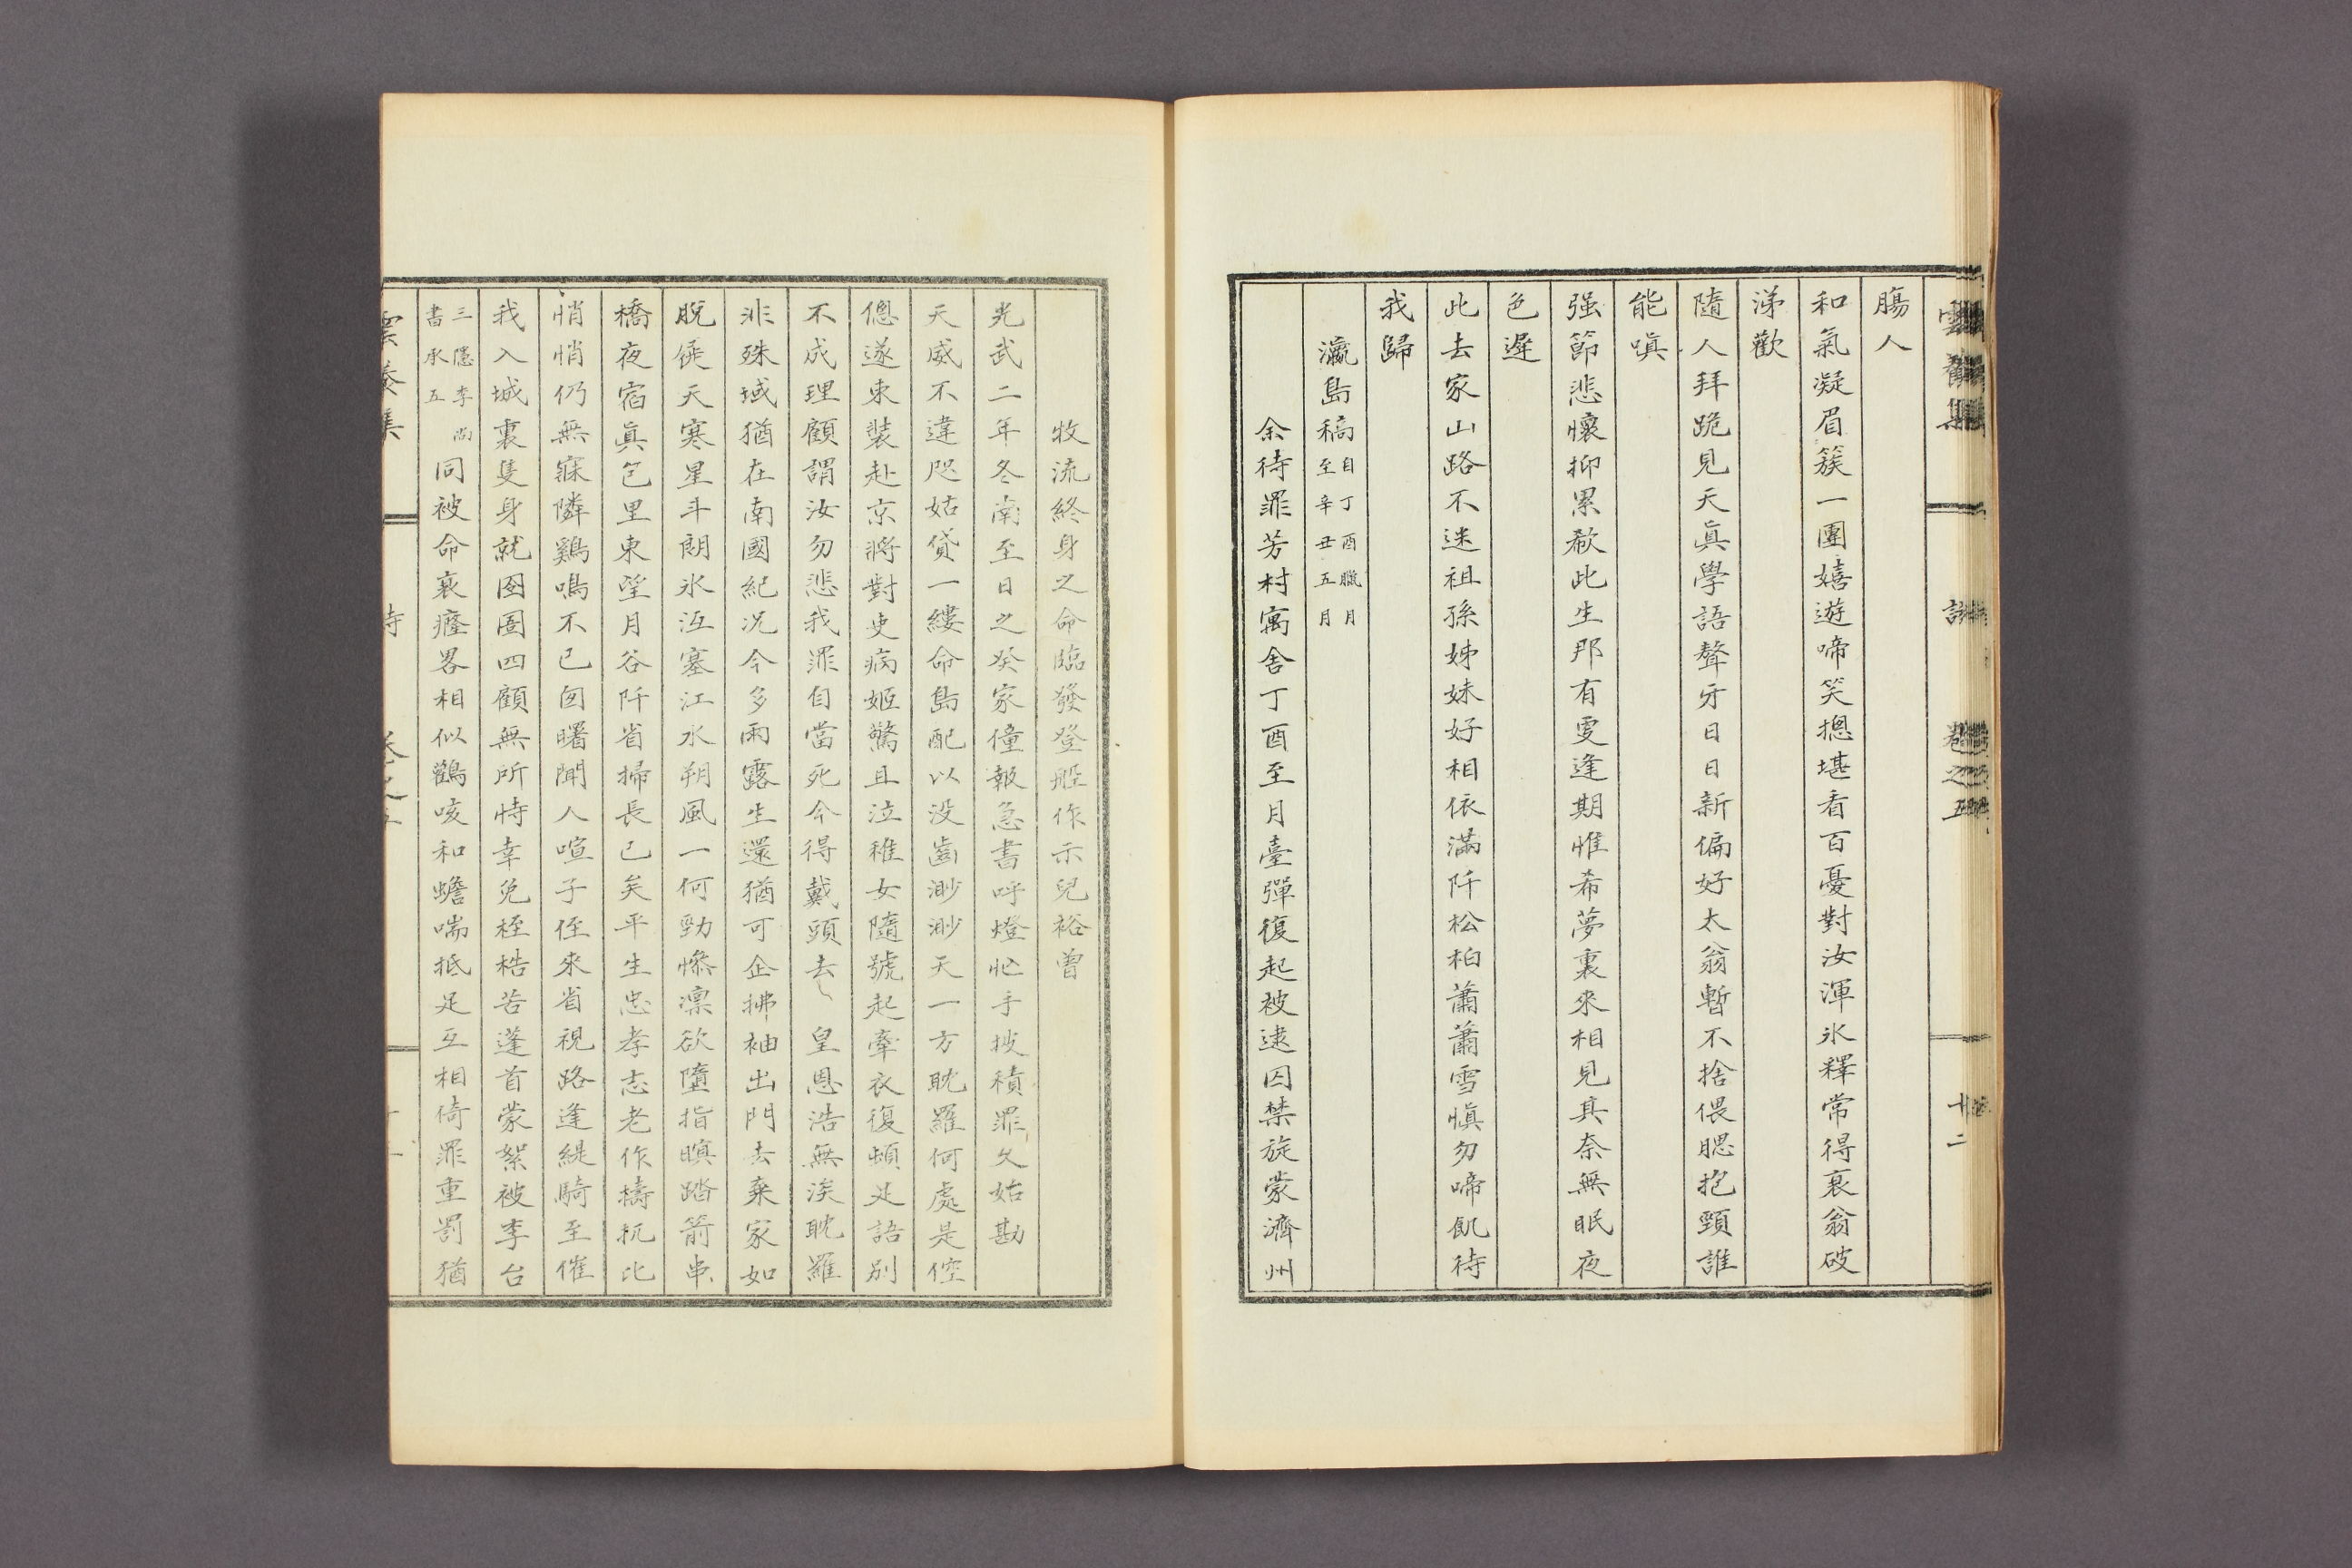 詩
卷之五
十二
腸人
和氣凝眉簇一團嬉遊啼笑摠堪看百憂對汝渾氷釋常得衰翁破
涕歡
隨人拜跪見天眞學語聲牙日日新偏好太翁暫不捨偎腮抱頸誰
能嗔
强節悲懷抑累欷此生那有更逢期惟希夢裏來相見其奈無眠夜
色遲
此去家山路不迷祖孫姊妹好相依滿阡松柏蕭蕭雪愼勿啼飢待
我歸
瀛島稿自丁酉臘月至辛丑五月
余待罪芳村寓舍丁酉至月臺彈復起被逮囚禁旋蒙濟州
牧流終身之命臨發登船作示兒裕曾
光武二年冬南至日之癸家僮報急書呼燈忙手披積罪久始勘
天威不違咫姑貸一縷命島配以没齒渺渺天一方耽羅何處是倥
傯遂束裝赴京將對吏病姬驚且泣稚女隨號起牽衣復頓足語別
不成理顧謂汝勿悲我罪自當死今得戴頭去皇恩浩無涘耽羅
非殊域猶在南國紀况今多雨露生還猶可企拂袖出門去棄家如
脫屣天寒星斗朗氷沍塞江水朔風一何勁慘凛欲墮指瞑踏箭串
橋夜宿眞乞里東望月谷阡省掃長已矣平生忠孝志老作檮杌比
悄悄仍無寐隣鷄鳴不已囪曙聞人喧子侄來省視路逢緹騎至催
我入城裏隻身就囹圄四顧無所恃幸免桎梏苦蓬首蒙絮被李台
三隱李尙書承五同被命衰癃畧相似鸛咳和蟾喘抵足互相倚罪重罰猶